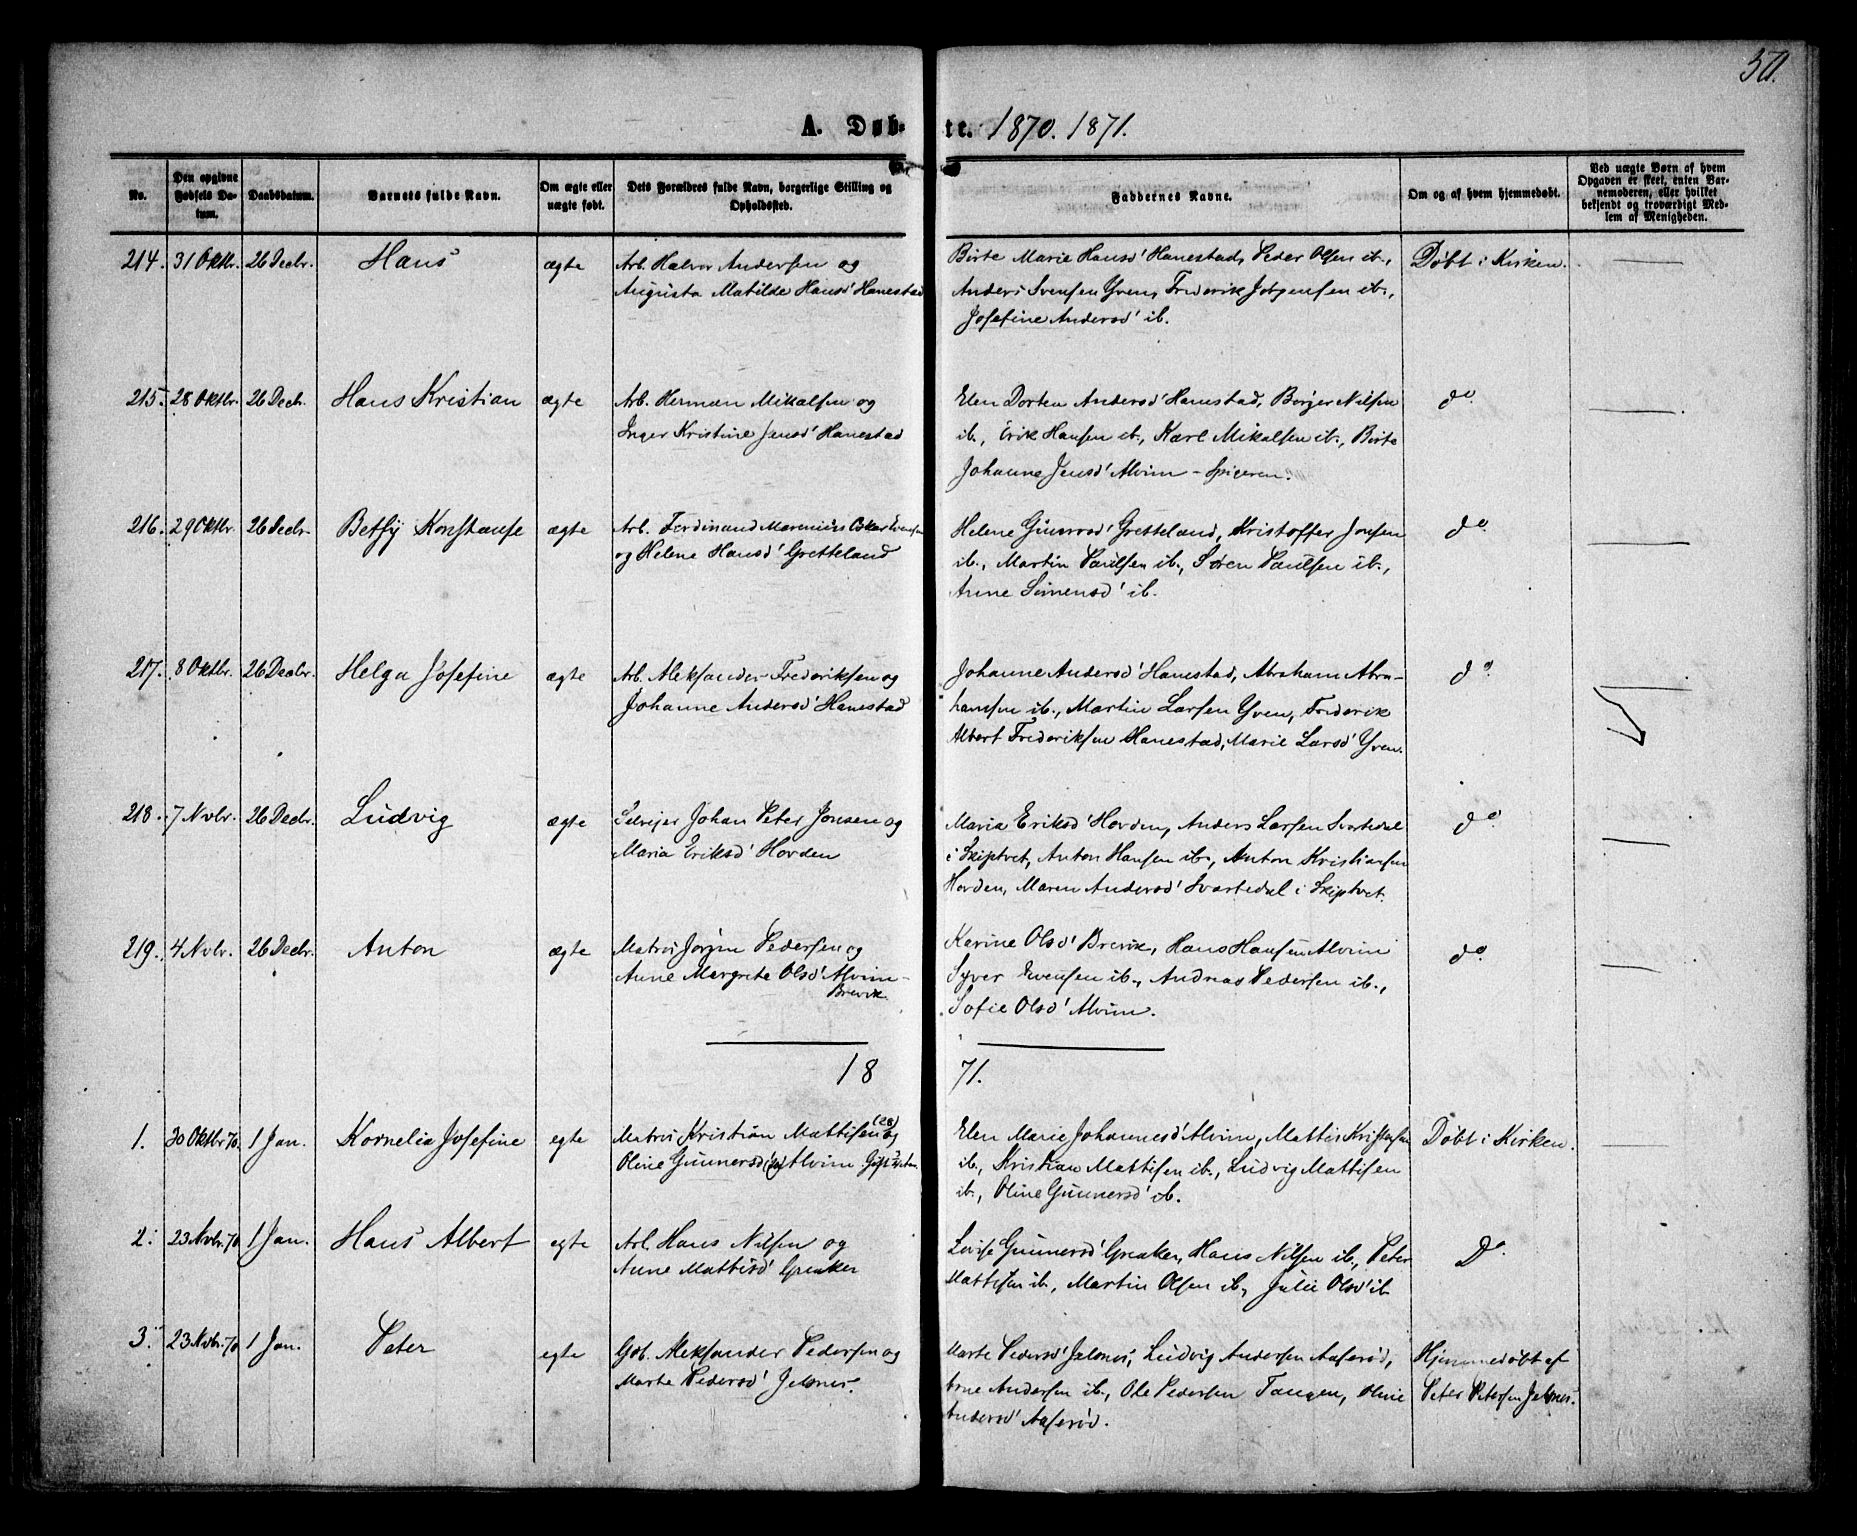 50.
A. Døb- te. 1870. 1871.
No.
Den opgivne Fødsels Da-tum.
Daabsdatum.
Barnets fulde Navn.
Om ægte eller uægte født.
Dets Forældres fulde Navn, borgerlige Stilling og Opholdssted.
Faddernes Navne.
Om og af hvem hjemmedøbt.
Ved uægte Børn af hvem Opgaven er skeet, enten Bar-nemoderen, eller hvilket bekjendt og troværdigt Med-lem af Menigheden.
214. 31 Oktbr. 26 Decbr. Hans ægte Arb. Halvor Andersen og
Augusta Matilde Hansd' Hanestad
Birte Marie Hansd' Hanestad, Peder Olsen ib.,
Anders Svensen Yven, Frederik Jørgensen ib.,
Josefine Andersd' ib.
Døbt i Kirken.
215. 28 Oktbr. 26 Decb. Hans Kristian ægte Arb. Herman Mikalsen og
Inger Kristine Jensd' Hanestad
Elen Dortea Andersd' Hanestad, Børger Nilsen
ib., Erik Hansen ib., Karl Mikalsen ib., Birte
Johanne Jensd' Alvim - Spigeren.
do.
216. 29 Oktbr. 26 Decbr. Betsy Konstanse ægte Arb. Ferdinand Marenius Oskar Evensen
og Helene Hansd' Gretteland
Helene Gunersd' Gretteland, Kristoffer Jonsen
ib., Martin Paulsen ib., Søren Paulsen ib.,
Anne Simensd' ib.
do.
217. 8 Oktbr. 26 Decbr. Helga Josefine ægte Arb. Aleksander Frederiksen og
Johanne Andersd' Hanestad
Johanne Andersd' Hanestad, Abraham Abra-
hamsen ib., Martin Larsen Yven, Frederik
Albert Frederiksen Hanestad, Marie Larsd' Yven.
do.
218. 7 Nvbr. 26 Decbr. Ludvig ægte Selvejer Johan Peter Jonsen og
Maria Eriksd' Hovden
Maria Eriksd' Hovden, Anders Larsen Svartedal
i Skiptvet, Anton Hansen ib., Anton Kristiansen
Hovden, Maren Andersd' Svartedal i Skiptvet.
do.
219. 4 Nvbr. 26 Decbr. Anton ægte Matros Jørgen Pedersen og
Anne Margrete Olsd' Alvim-
Brevik.
Karine Olsd' Brevik, Hans Hansen Alvim
Syver Evensen ib., Andreas Pedersen ib.,
Sofie Olsd' Alvim.
do.
18 71.
1. 30 Oktbr 70. 1 Jan. Kornelia Josefine egte Matros Kristian Mattisen (28) og
Oline Gunnersd' Alvim
Elen Marie Johannesd' Alvim, Mattis Kristensen
ib., Kristian Mattisen ib., Ludvig Mattisen
ib., Oline Gunnersd' ib.
Døbt i Kirken.
2. 23 Nvbr. 70 1 Jan. Hans Albert egte Arb. Hans Nilsen og
Anne Mattisd' Greaker
Lovise Gunnersd' Greaker, Hans Nilsen ib., Peter
Mattisen ib., Martin Olsen ib., Julie Olsd' ib
Do.
3. 23 Nvbr. 70 1 Jan. Peter egte Gbr. Aleksander Pedersen og
Marte Pedersd' Jelsnes.
Marte Pedersd' Jelsnes, Ludvig Andersen Aaserød,
Arne Andersen ib., Ole Pedersen Tangen, Oline
Andersd' Aaserød.
Hjemmedøbt af
Peter Petersen Jelsnes.